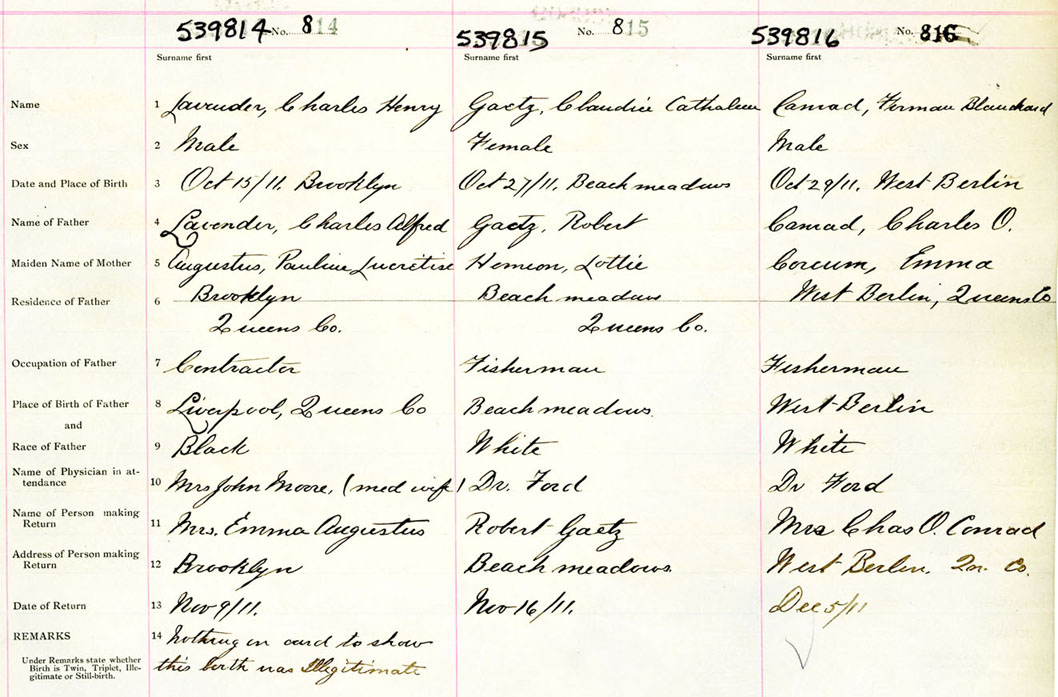 539814 No. 814 539815 No. 815 539816 No. 816
Surname first Surname first Surname first
Name 1 Lavender, Charles Henry Gaetz, Claudice Cathaleen Conrad, Firman Blanchard
Sex 2 Male Female Male
Date and Place of Birth 3 Oct 15/11. Brooklyn Oct 27/11. Beach meadows Oct 29/11. West Berlin
Name of Father 4 Lavender, Charles Alfred Gaetz, Robert Conrad, Charles O.
Maiden Name of Mother 5 Augustus, Pauline Lucretise Hemeon, Lottie Corcum, Emma
Residence of Father 6 Brooklyn Beach meadows West Berlin, Queens Co
Queens Co. Queens Co.
Occupation of Father 7 Contractor Fisherman Fisherman
Place of Birth of Father 8 Liverpool, Queens Co Beach meadows. West Berlin
and
Race of Father 9 Black White White
Name of Physician in at-
tendance 10 Mrs John Moore, (med wife) Dr. Ford Dr Ford
Name of Person making
Return 11 Mrs. Emma Augustus Robert Gaetz Mrs Chas O. Conrad
Address of Person making
Return 12 Brooklyn Beach meadows. West Berlin. Qn. Co.
Date of Return 13 Nov 9/11. Nov 16/11. Dec 5/11
REMARKS 14 nothing on card to show
Under Remarks state whether
Birth is Twin, Triplet, Ille-
gitimate or Still-birth.
this birth was Illegitimate